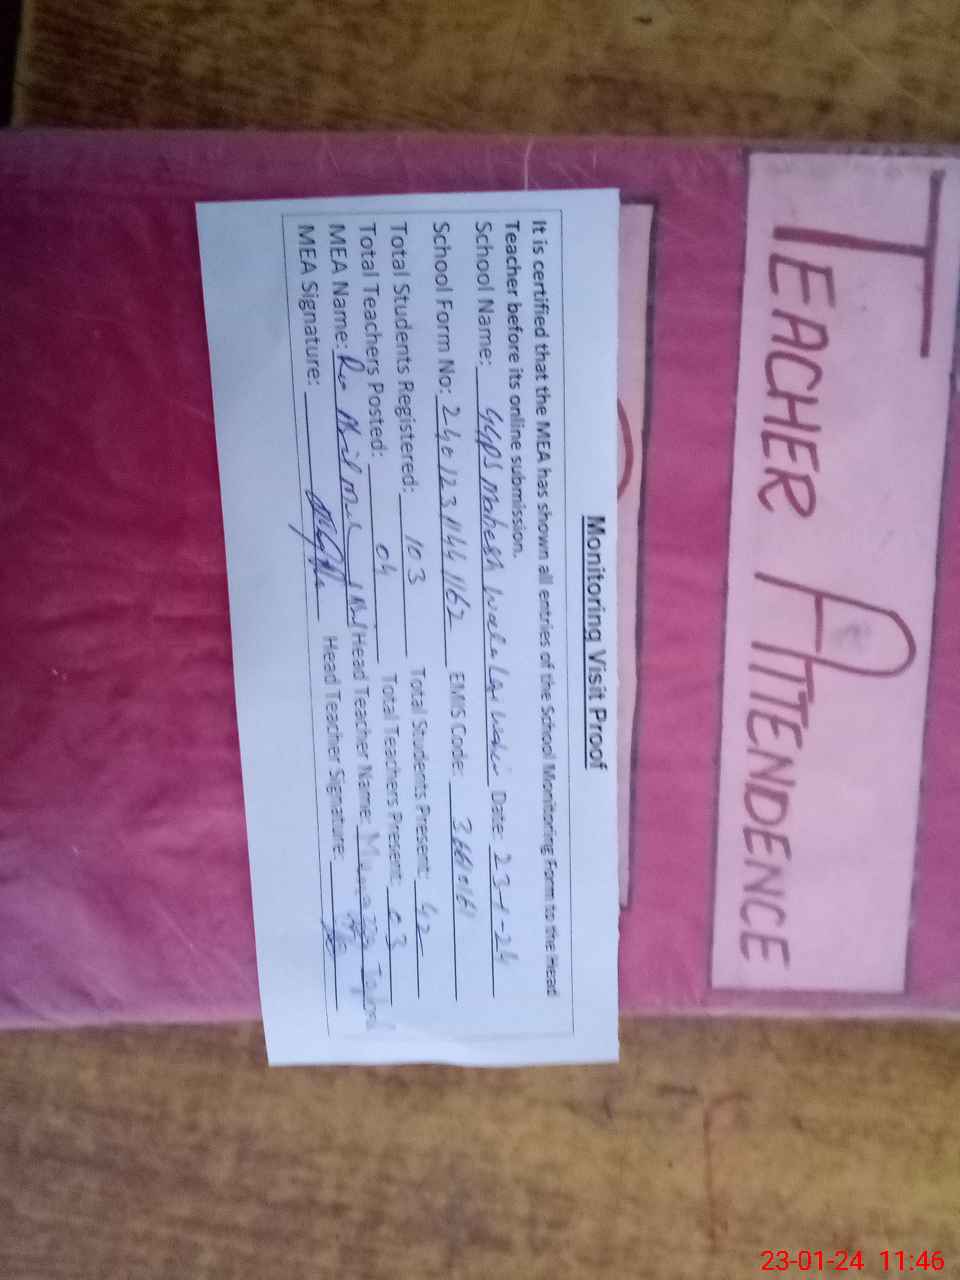 TEACHER ATTENDENCE
Monitoring Visit Proof
It is certified that the MEA has shown all entries of the School Monitoring Form to the Head
Teacher before its online submission.
School Name: GGPS Mahesh Wala Date: 23-1-24
School Form No: EMIS Code:
Total Students Registered: 103 Total Students Present: 42
Total Teachers Posted: 04 Total Teachers Present: 03
MEA Name: Head Teacher Name:
MEA Signature: Head Teacher Signature:
23-01-24 11:46